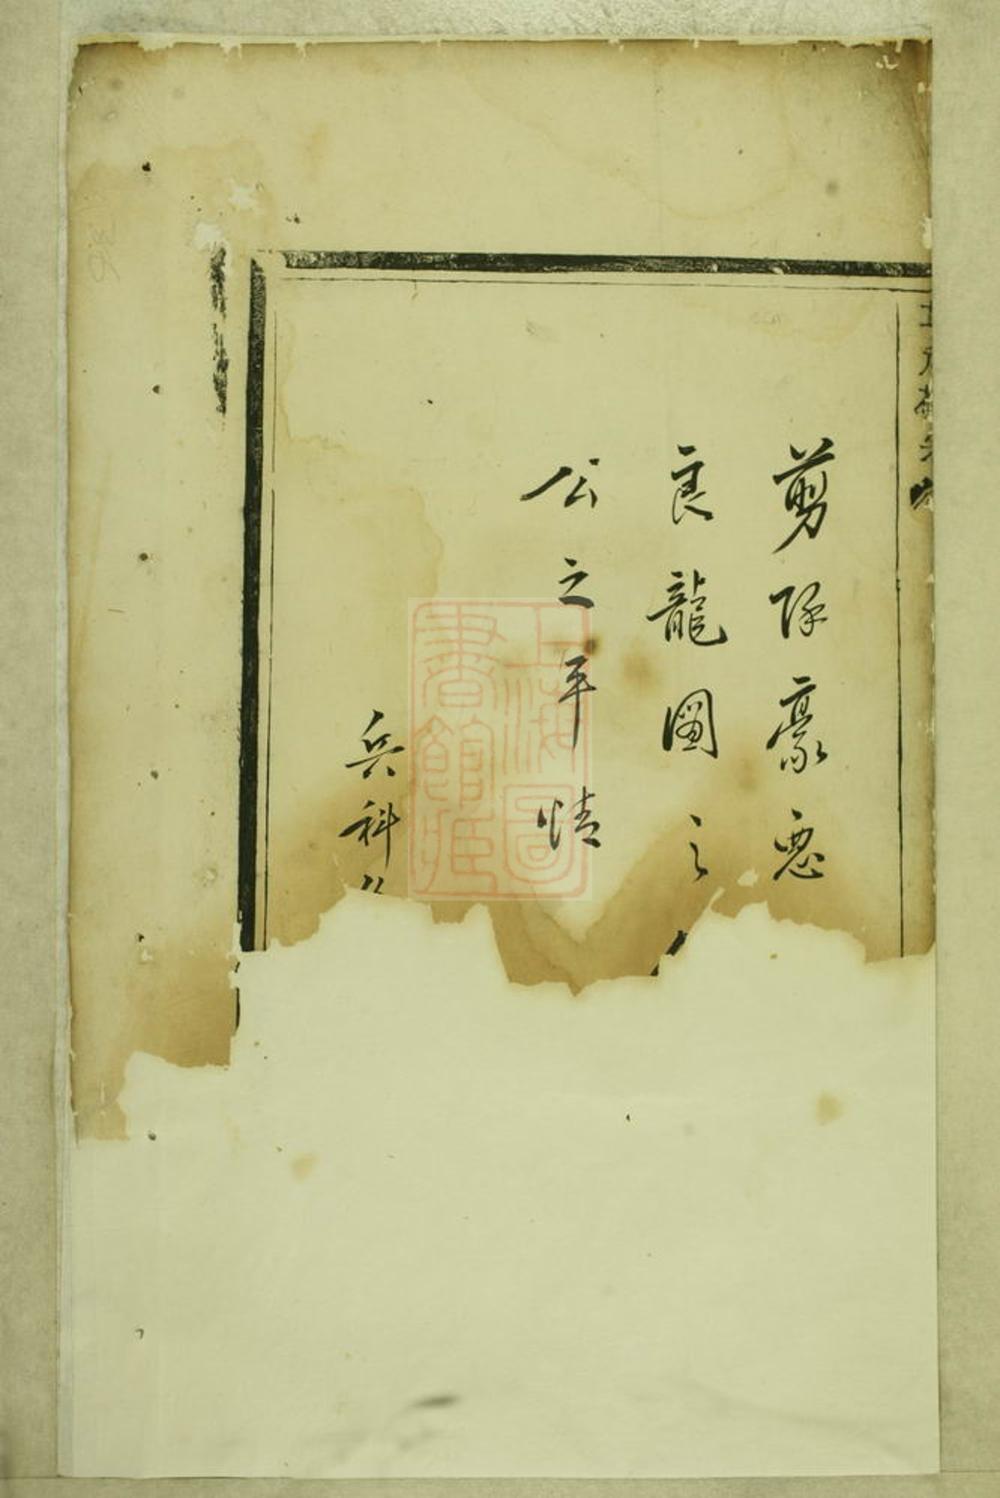 剪除豪惡
良龍圖之
公之平情
兵科
上海圖書館藏